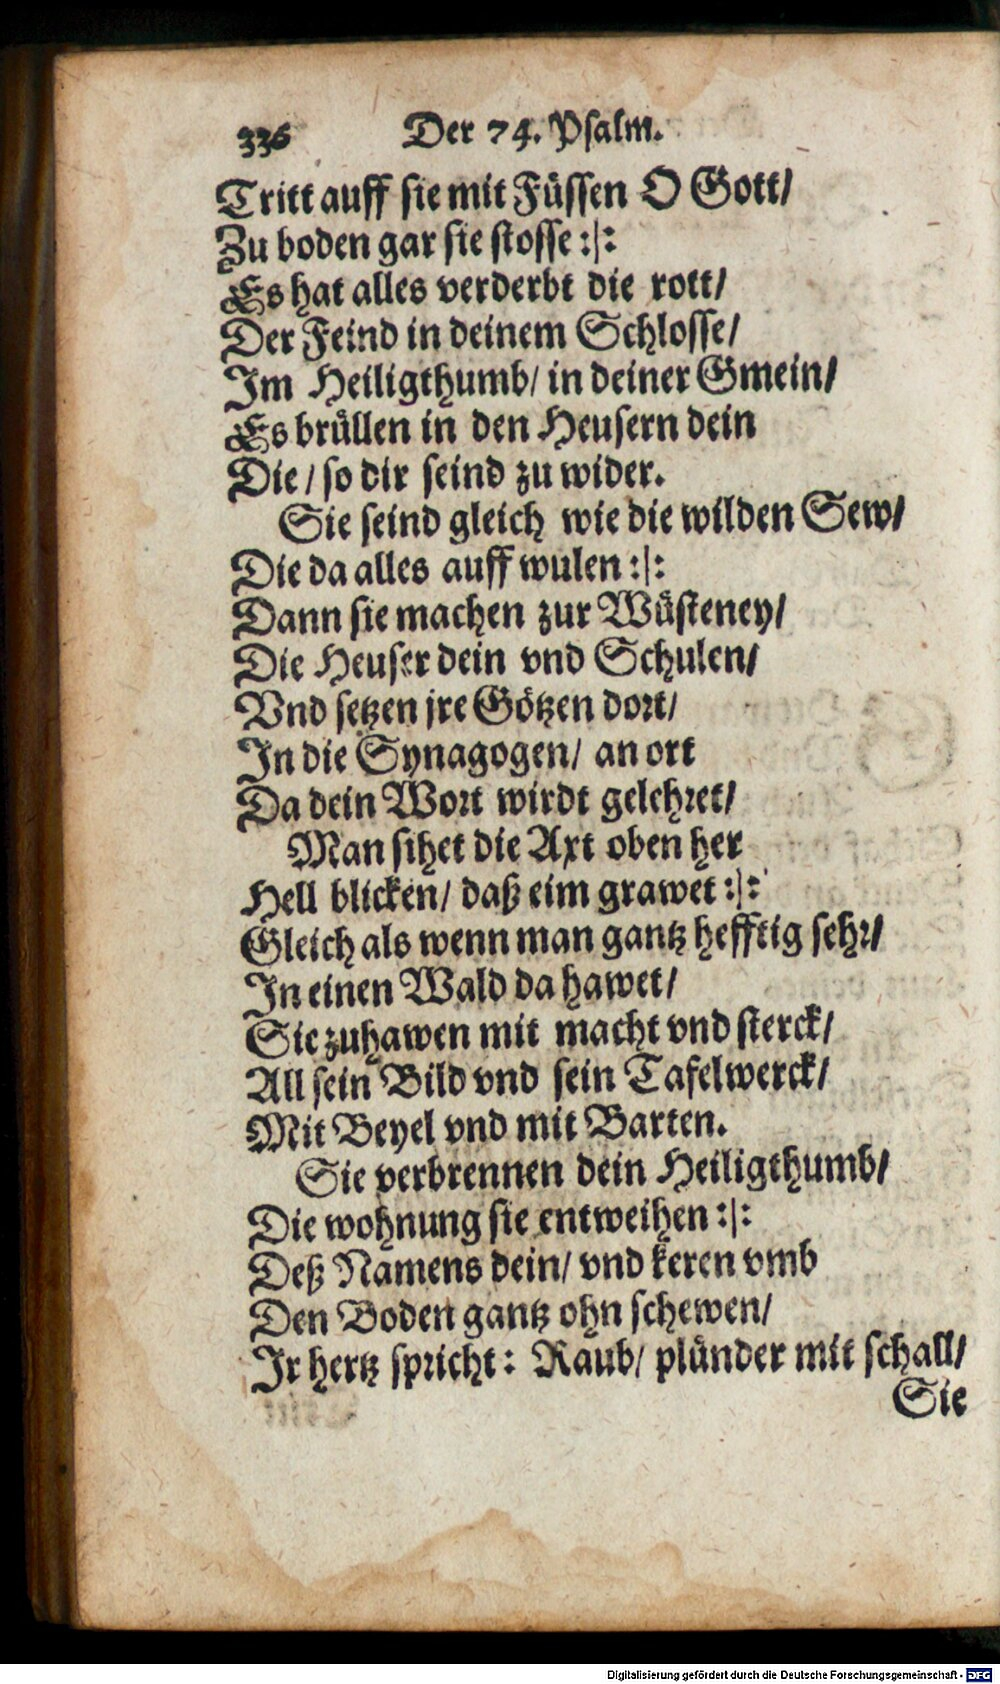 336 Der 74. Psalm.
Tritt auff sie mit Füssen O Gott/
Zu boden gar sie stosse :|:
Es hat alles verderbt die rott/
Der Feind in deinem Schlosse/
Im Heiligthumb/ in deiner Gmein/
Es brüllen in den Heusern dein
Die/ so dir seind zu wider.
Sie seind gleich wie die wilden Sew/
Die da alles auff wulen :|:
Dann sie machen zur Wüsteney/
Die Heuser dein vnd Schulen/
Vnd setzen jre Götzen dort/
In die Synagogen/ an ort
Da dein Wort wirdt gelehret/
Man sihet die Axt oben her
Hell blicken/ daß eim grawet :|:
Gleich als wenn man gantz hefftig sehr/
In einen Wald da hawet/
Sie zuhawen mit macht vnd sterck/
All sein Bild vnd sein Tafelwerck/
Mit Beyel vnd mit Barten.
Sie verbrennen dein Heiligthumb/
Die wohnung sie entweihen :|:
Deß Namens dein/ vnd keren vmb
Den Boden gantz ohn schewen/
Ir hertz spricht: Raub/ plünder mit schall/
Sie
Digitalisierung gefördert durch die Deutsche Forschungsgemeinschaft - DFG